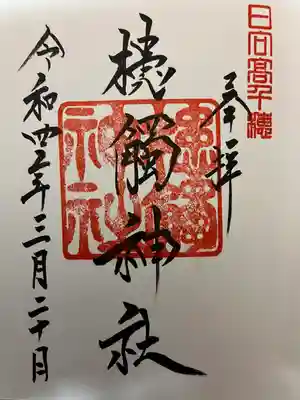 日向高千穂
奉拝
槵觸神社
令和四年三月二十日